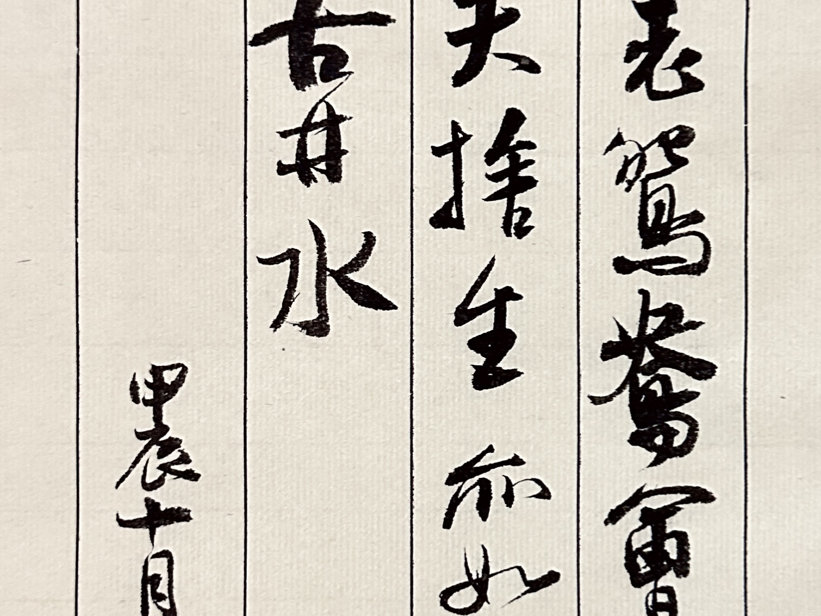 老鴛鴦會
夫捨生亦如
古井水
甲辰十月